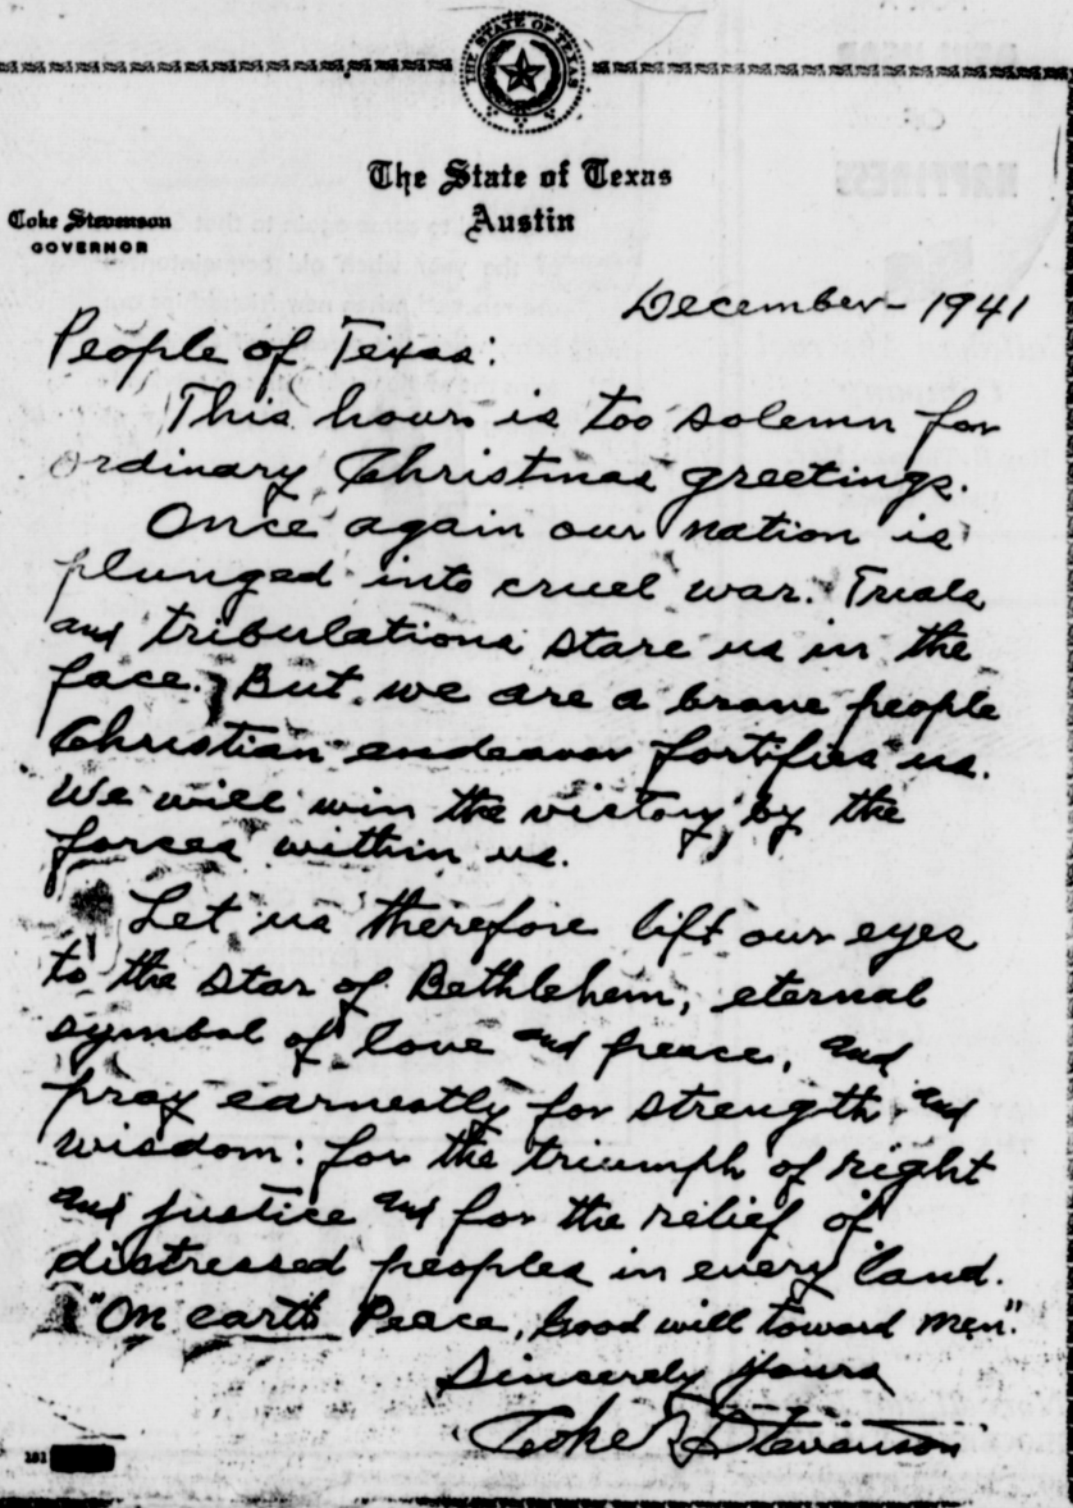 THE STATE OF TEXAS
The State of Texas
Austin
Coke Stevenson
GOVERNOR
December - 1941
People of Texas:
This hour is too solemn for
ordinary Christmas greetings.
Once again our nation is
plunged into cruel war. Trials
and tribulations stare us in the
face. But we are a brave people
Christian endeavor fortifies us.
We will win the victory by the
forces within us.
Let us therefore lift our eyes
to the star of Bethlehem, eternal
symbol of love and peace, and
pray earnestly for strength and
wisdom: for the triumph of right
and justice and for the relief of
distressed peoples in every land.
"On earth Peace, Good will toward men."
Sincerely yours
Coke R Stevenson